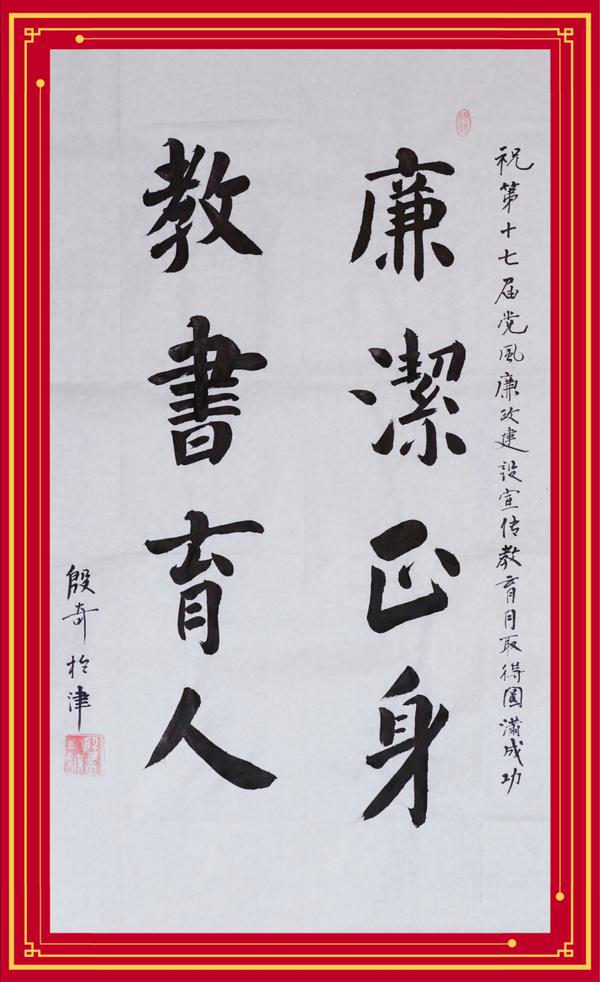 祝第十七届党風廉政建设宣传教育月取得圓滿成功
廉潔正身
教書育人
殷奇於津